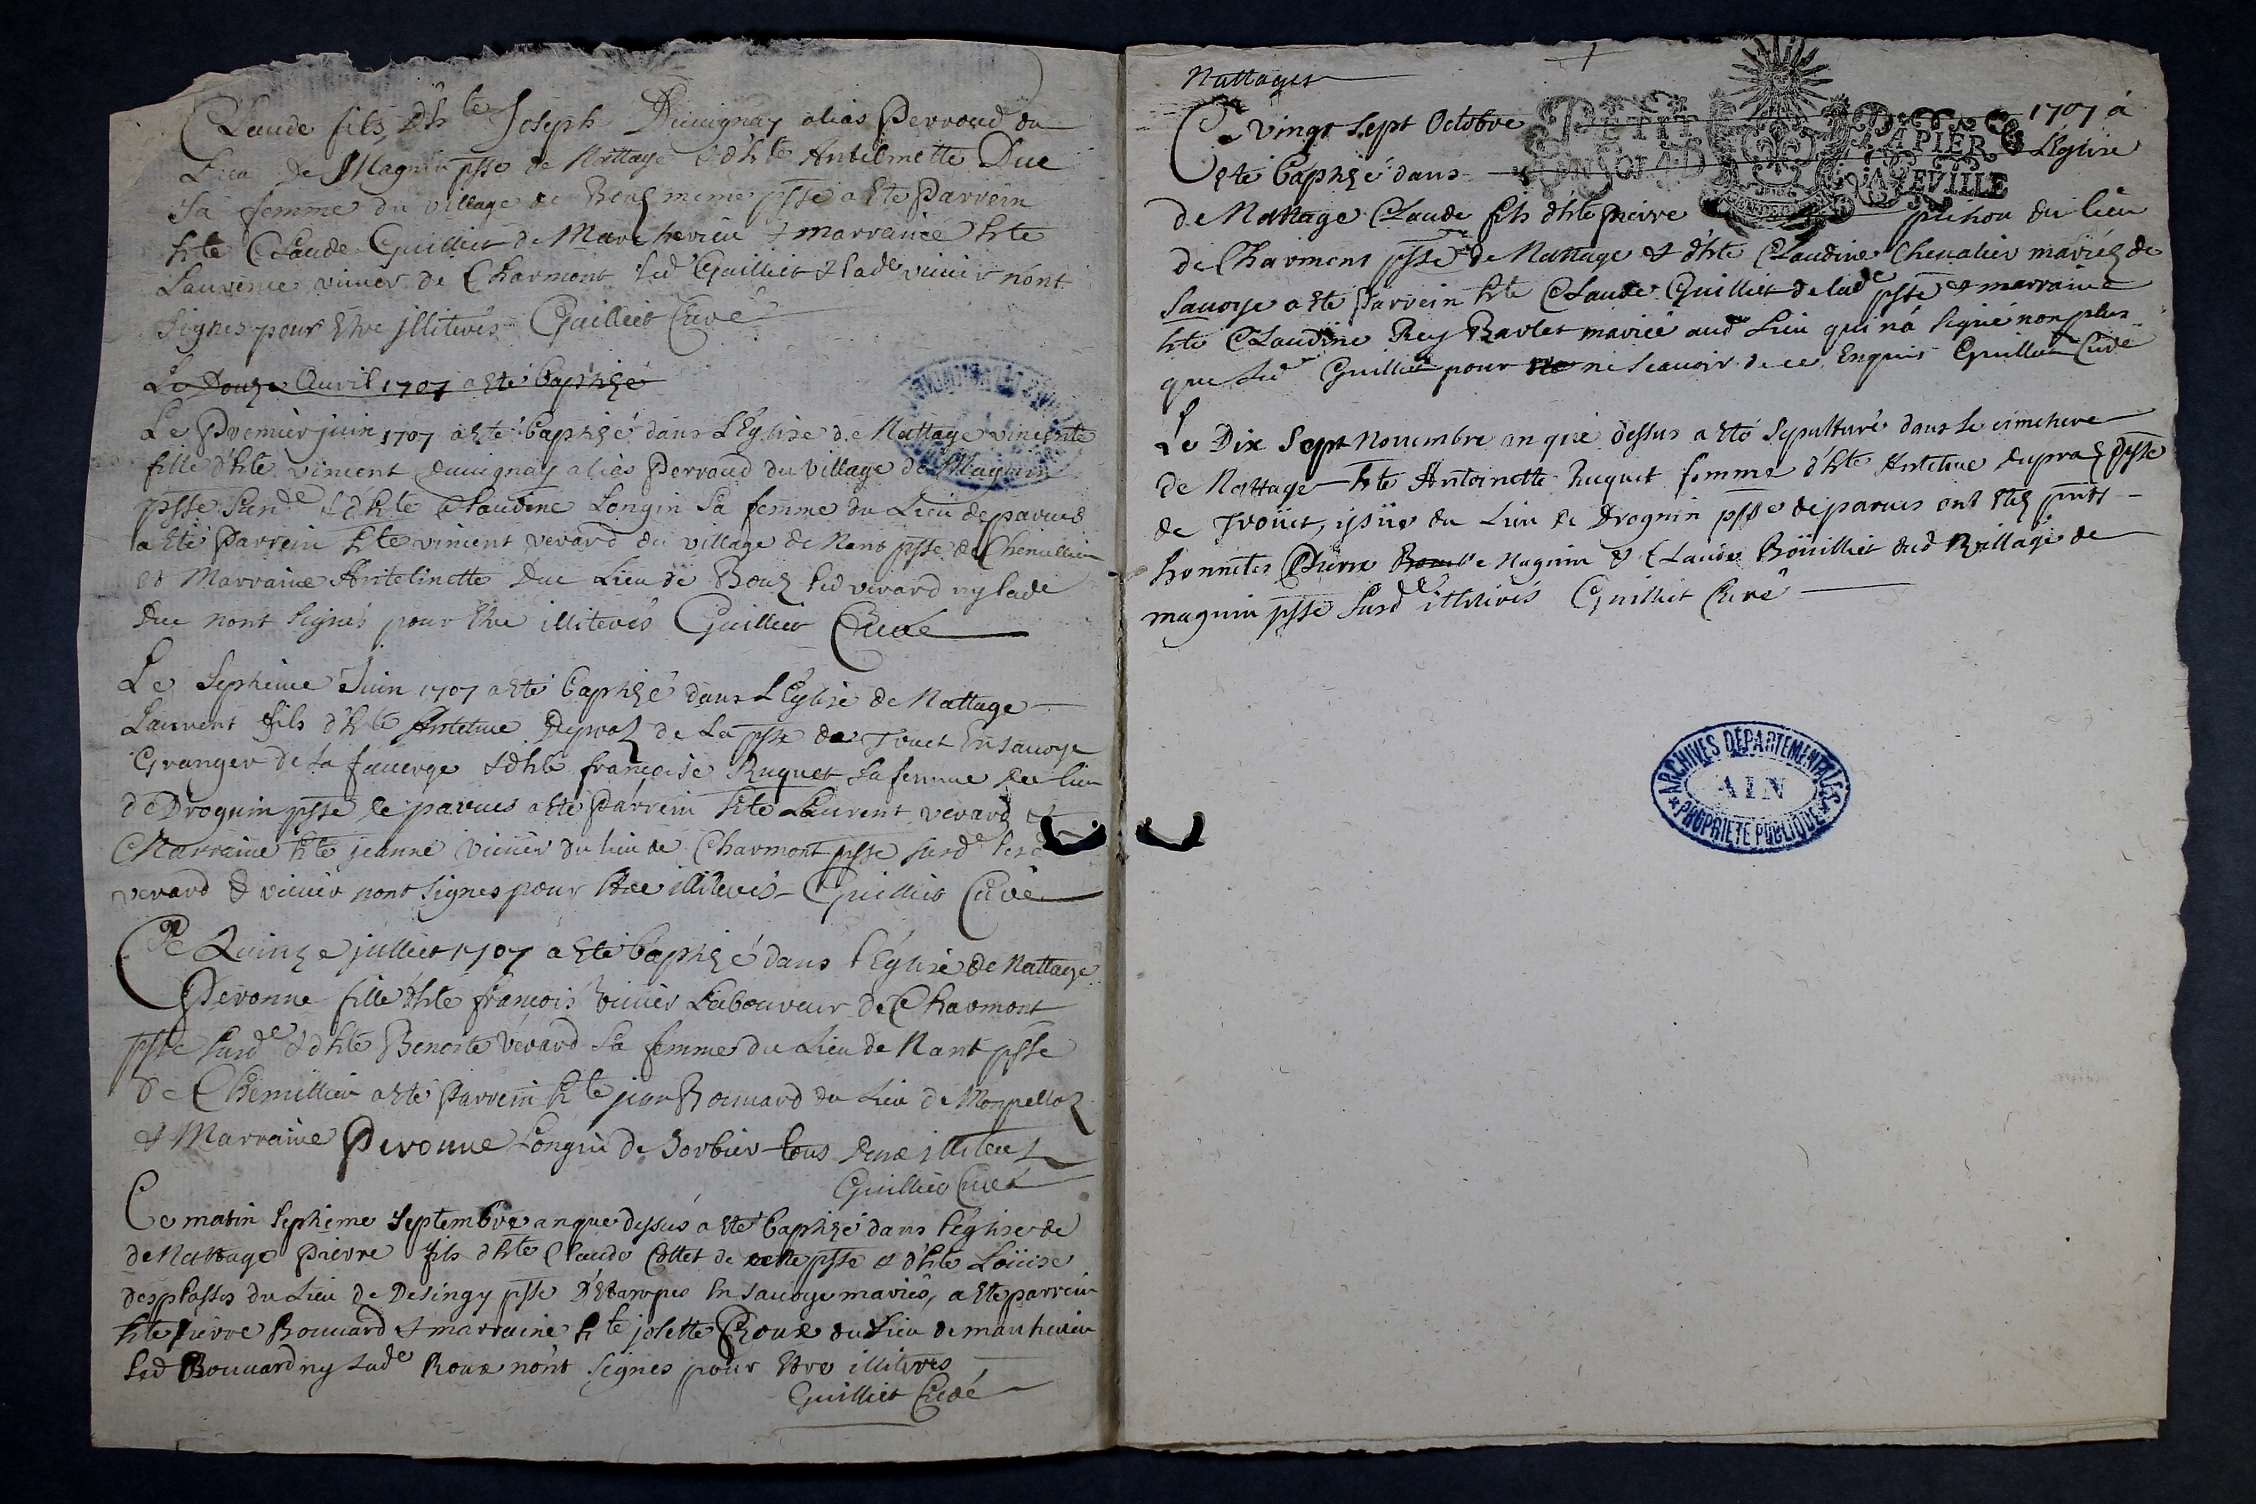 Claude fils d'hte Joseph Duuignay alias Perroud du
Lieu de Magnin psse de Nattage & d'hte Antelmette Duc
Sa femme du village de Bouz meme psse a ete Parrein
hte Claude Guilliet de Marcherieu & marraine hte
Laurence vuuier de Charmont led Guilliet & lade vuuier nont
Signes pour Etre jlliterés Guilliet Curé
Le Douze Auril 1707 a ete baptizé
Le Premier juin 1707 a ete baptizé dans L'Eglise de Nattage vincente
fille d'hte vincent Duuignay alias Perroud du village de Magnin
psse Susde & d'hte Claudine Longin Sa femme du Lieu de parues
a ete Parrein hte vincent verard du village de Nant psse de Chemillieu
et Marraine Antelmette Duc Lieu de Bouz led verard ny lade
Duc nont Signés pour Etre illiterés Guilliet Curé
Le Septieme Juin 1707 a ete baptizé dans L'Eglise de Nattage
Laurent fils d'hte Antelme Depraz de La psse de Trouet En sauoye
Granger de la fauerge & d'hte françoise Ruguet sa femme du lieu
de Drognin psse de parues a ete Parrein hte Laurent verard et
Marraine hte jeanne vuuier du lieu de Charmont psse susde lesd
verard & vuuier nont signes pour Etre illiterés Guilliet Curé
Ce Quinze julliet 1707 a ete baptizé dans l'Eglise de Nattage
Peronne fille d'hte françois vuuier Laboureur de Charmont
psse susde & d'hte Benoite verard sa femme du Lieu de Nant psse
de Chemillieu a ete Parrein hte jean Bouuard du Lieu de Monpellaz
& Marraine Peronne Longin de Sorbier tous deux illiterez
Guilliet Curé
Ce matin Septieme Septembre an que dessus a ete baptizé dans l'église de
de Nattage Pierre fils d'hte Claude Collet de cette psse & d'hte Loüise
desplasses du Lieu de Desingy psse D'Etampes En sauoye mariés, a ete parrein
hte pierre Bouuard & marraine hte josette Roux du Lieu de marcherieu
led Bouuard ny lade Roux nont signes pour etre illiteres
Guilliet Curé
Nattages
Ce vingt sept Octobre 1707 à
PETIT PAPIER
Ete baptizé dans L'Eglise
de Nattage Claude fils d'hte pierre pichon du lieu
de Charmont psse de Nattage & d'hte Claudine Cheualier mariéz de
sauoye a ete Parrein hte Claude Guilliet de lade psse & marraine
hte Claudine Rey Barlet mariée aud Lieu qui n'a signé non plus
que led Guilliet pour ne scauoir de ce Enquis Guilliet Curé
Le Dix Sept Nouembre an que dessus a ete Sepulturé dans le cimetiere
de Nattage hte Antoinette Ruguet femme d'hte Antelme Depraz psse
de Troüet, issüe du Lieu de Drognin psse de parues ont etez pnts
honnetes Pierre Magnin & Claude Boüilliet dud Village de
magnin psse susde illiterés Guilliet Curé
ARCHIVES DÉPARTEMENTALES
AIN
PROPRIÉTÉ PUBLIQUE